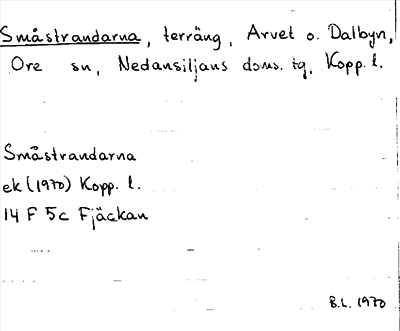 Småstrandarna, terräng, Arvet o. Dalbyn,
Ore sn, Nedansiljans doms. tg, Kopp. l.
Småstrandarna
ek (1970) Kopp. l.
14 F 5c Fjäckan
B.L. 1970